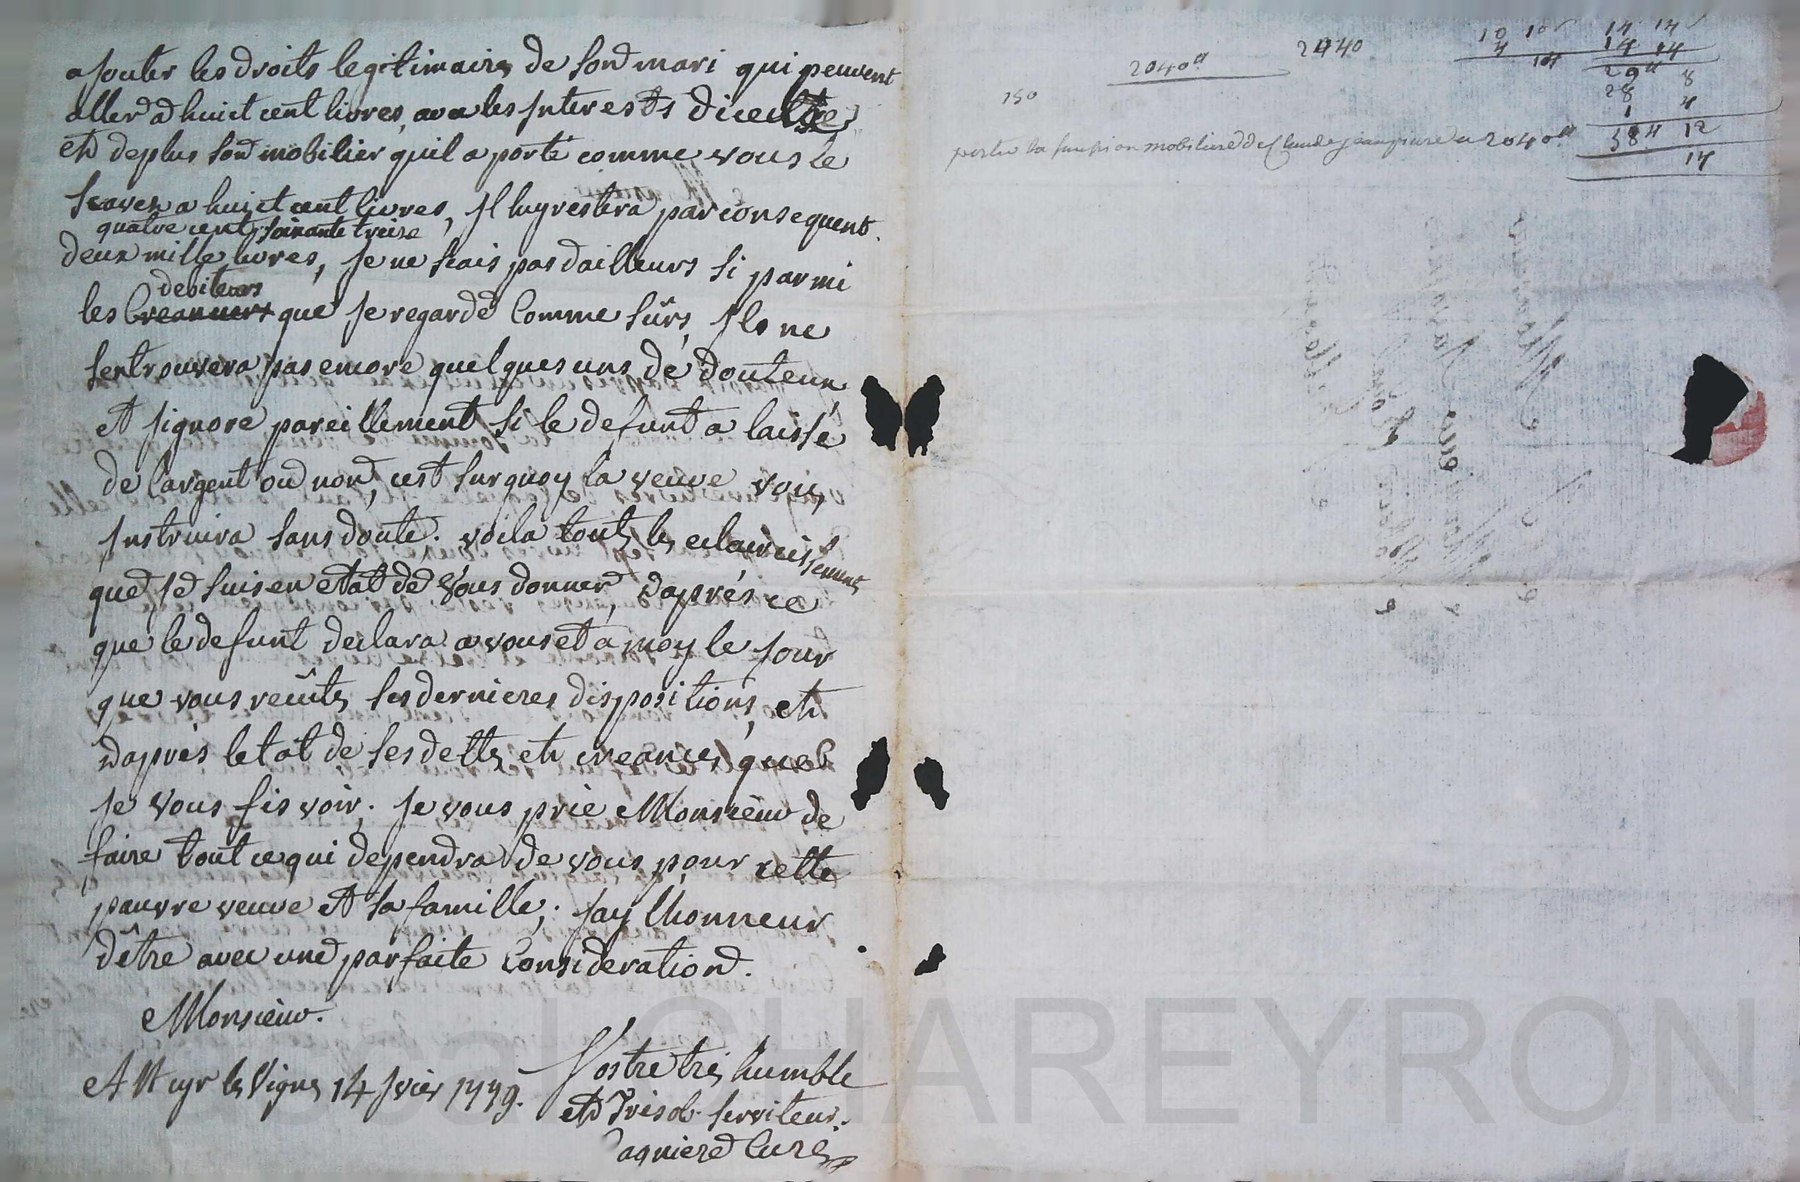 ajouter les droits legitimaires de son mari qui peuvent
aller a huict cent livres, avec les Interests dicelle
et deplus son mobilier quil a porté comme vous le
scavez a huict cent livres, Il luy restera par consequent
quatre cent soixante treize
deux mille livres, Je ne scais pas dailleurs si parmi
debiteurs
les creanciers que Je regarde Comme sûrs, Il ne
sentrouvera pas encore quelques uns de douteux,
et Jignore pareillement si le defunt a laissé
de largent ou non, cest surquoy la veuve vous
Instruira sans doute. voila touts les eclaircissements
que Je suis en etat de vous donner, daprés ce
que le defunt declara a vous et a moy le Jour
que vous recûtes ses dernieres dispositions, et
daprés letat de ses dettes et creances, que
Je vous fis voir. Je vous prie Monsieur de
faire tout ce qui dependra de vous pour cette
pauvre veuve et sa famille; Jay lhonneur
dêtre avec une parfaite Consideration.
Monsieur.
A St cyr les Vignes 14 Jvier 1779.
Vostre tres humble
et tres ob. serviteur.
Curé
2040
2440
150
10 10
14 14
14 14
29 8
28
1 4
58 12
14
mobiliere de Claude Jean pierre a 2040
Pascal CHAREYRON